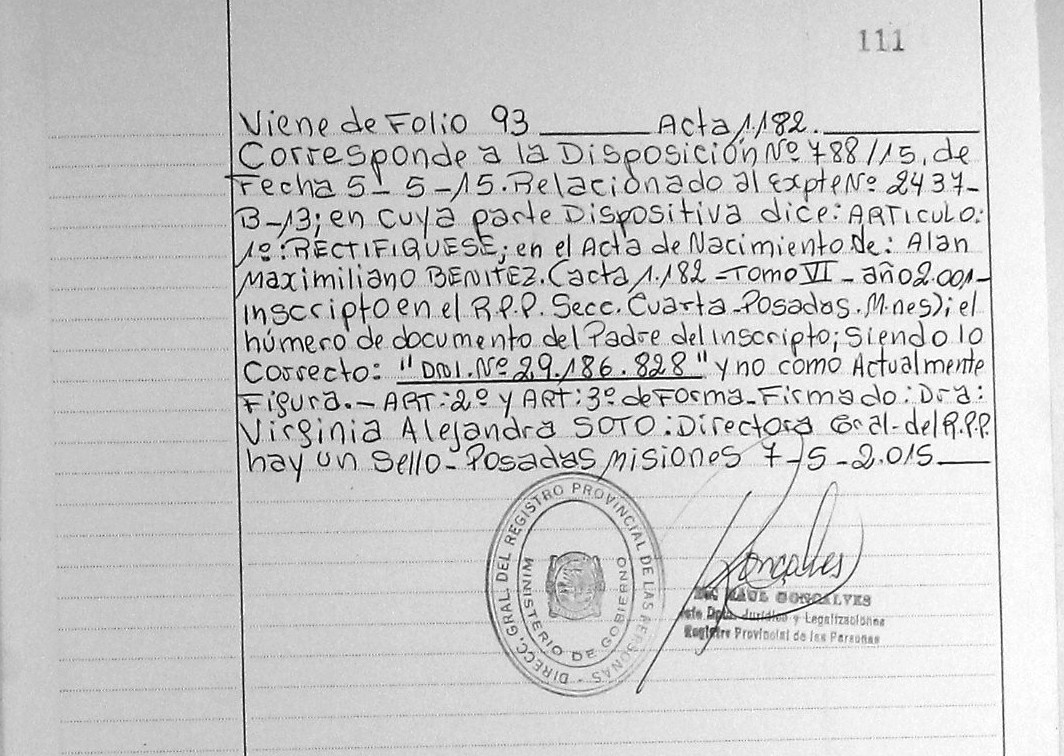 111
Viene de Folio 93 ______ Acta 1.182. ______
Corresponde a la Disposición Nº 788/15, de
Fecha 5-5-15. Relacionado al Expte Nº 2437-
B-13; en cuya parte Dispositiva dice: ARTICULO:
1º: RECTIFIQUESE; en el Acta de Nacimiento de: Alan
Maximiliano BENITEZ. (acta 1.182 - Tomo VI - año 2.001-
inscripto en el R.P.P. Secc. Cuarta - Posadas. M.nes); el
número de documento del Padre del inscripto; Siendo lo
Correcto: "DNI. Nº 29.186.828" y no como Actualmente
Figura. - ART: 2º y ART: 3º de Forma - Firmado: Dra:
Virginia Alejandra SOTO: Directora Gral - del R.P.P.
hay un Sello - Posadas Misiones 7-5-2.015 ______
DIRECC. GRAL. DEL REGISTRO PROVINCIAL DE LAS PERSONAS -
MINISTERIO DE GOBIERNO
Goncalves
RAUL GONCALVES
Dpto. Jurídico y Legalizaciones
Registro Provincial de las Personas